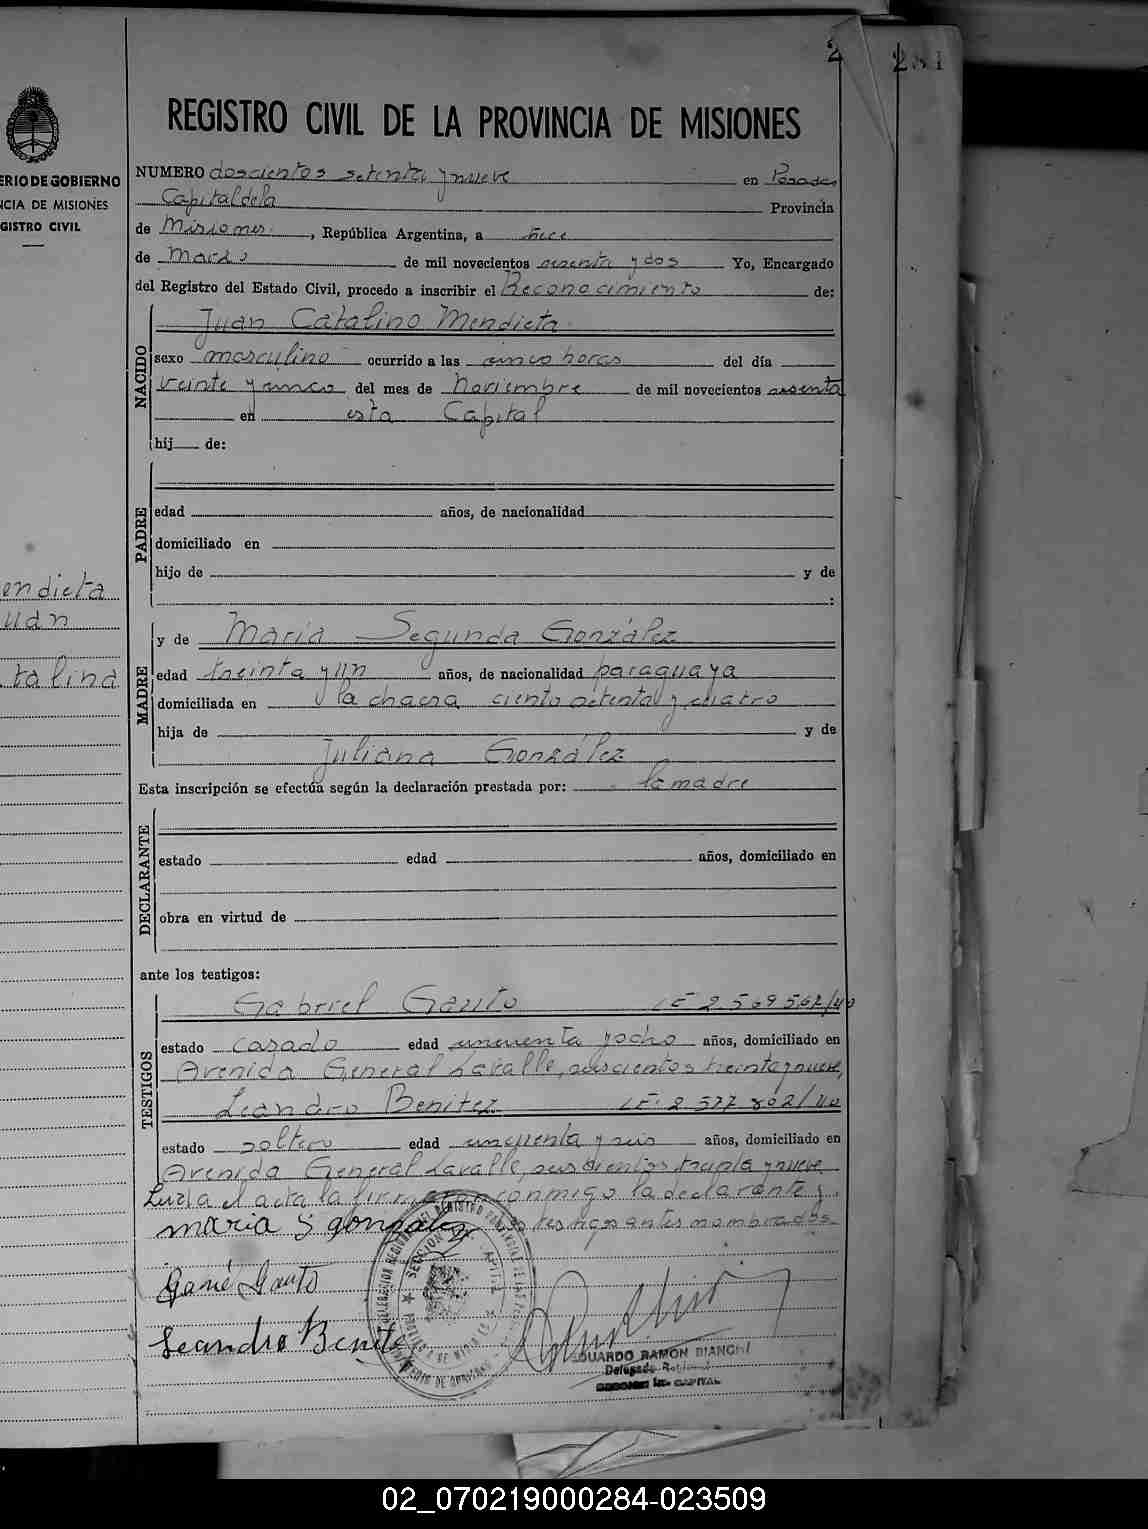 2 281
REGISTRO CIVIL DE LA PROVINCIA DE MISIONES
ERIO DE GOBIERNO
CIA DE MISIONES
GISTRO CIVIL
NUMERO doscientos setenta y nueve en Posadas
Capital de la Provincia
de Misiones, República Argentina, a trece
de Marzo de mil novecientos sesenta y dos Yo, Encargado
del Registro del Estado Civil, procedo a inscribir el Reconocimiento de:
NACIDO
Juan Catalino Mendieta
sexo masculino ocurrido a las cinco horas del día
veinte y cinco del mes de Noviembre de mil novecientos sesenta
en esta Capital
hij de:
PADRE
edad años, de nacionalidad
domiciliado en
hijo de y de
:
endieta
uan
talino
MADRE
y de María Segunda González
edad treinta y un años, de nacionalidad paraguaya
domiciliada en la chacra ciento setenta y cuatro
hija de y de
Juliana González
Esta inscripción se efectúa según la declaración prestada por: la madre
DECLARANTE
estado edad años, domiciliado en
obra en virtud de
ante los testigos:
TESTIGOS
Gabriel Gauto LE 2.569.567/40
estado casado edad cincuenta y ocho años, domiciliado en
Avenida General Lavalle, seiscientos treinta y nueve,
Leandro Benitez LE. 2.577.802/40
estado soltero edad cincuenta y seis años, domiciliado en
Avenida General Lavalle, seiscientos treinta y nueve
Leída el acta la firmaron conmigo la declarante y
maria S gonzalez testigos antes nombrados.
Gauto
Leandro Benite
EDUARDO RAMON BIANCHI
Delegado
SECCION CAPITAL
02_070219000284-023509